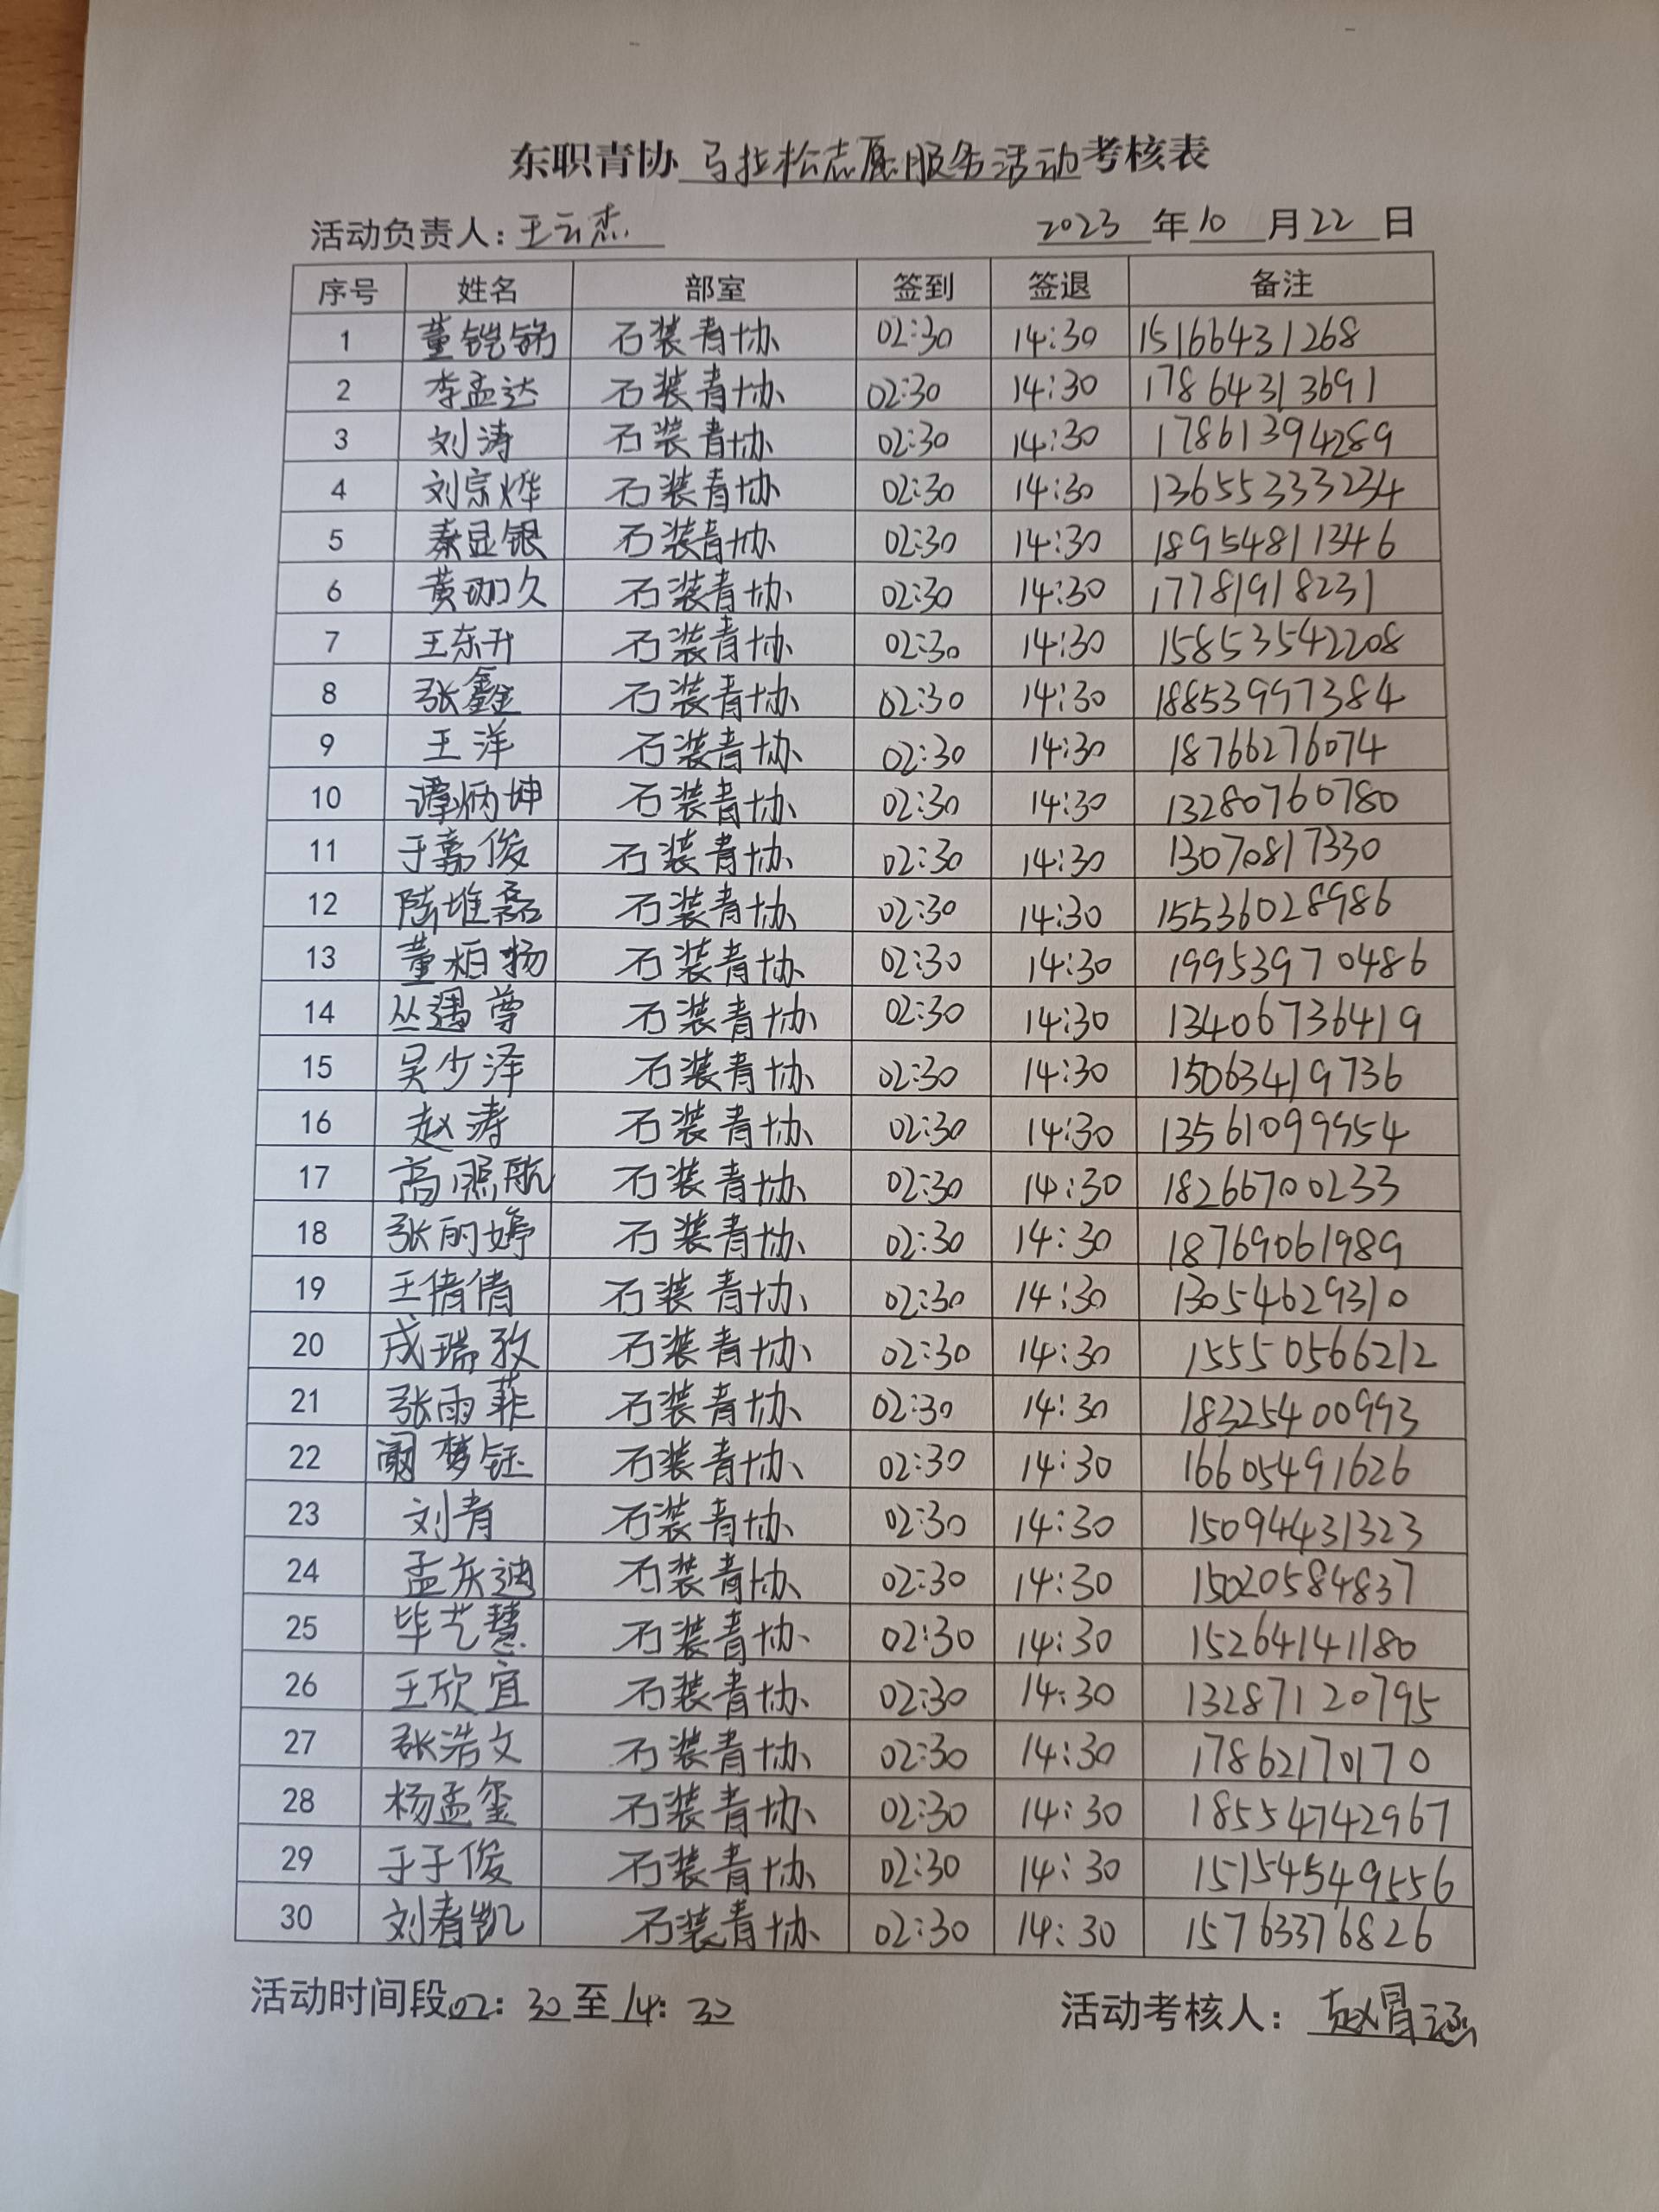 东职青协 马拉松志愿服务活动 考核表
活动负责人：王云杰 2023 年 10 月 22 日
序号 姓名 部室 签到 签退 备注
1 董铠锅 石装青协 02:30 14:30 15166431268
2 李孟达 石装青协 02:30 14:30 17864313691
3 刘涛 石装青协 02:30 14:30 17861394289
4 刘宗烨 石装青协 02:30 14:30 13655333234
5 秦显银 石装青协 02:30 14:30 18954811346
6 黄珈久 石装青协 02:30 14:30 17781918231
7 王东升 石装青协 02:30 14:30 15853542208
8 张鑫 石装青协 02:30 14:30 18853997384
9 王洋 石装青协 02:30 14:30 18766276074
10 谭炳坤 石装青协 02:30 14:30 13280760780
11 于嘉俊 石装青协 02:30 14:30 13070817330
12 陆堆磊 石装青协 02:30 14:30 15536028986
13 董栢扬 石装青协 02:30 14:30 19953970486
14 丛遇尊 石装青协 02:30 14:30 13406736419
15 吴少泽 石装青协 02:30 14:30 15063419736
16 赵涛 石装青协 02:30 14:30 13561099954
17 高照航 石装青协 02:30 14:30 18266700233
18 张的婷 石装青协 02:30 14:30 18769061989
19 王倩倩 石装青协 02:30 14:30 13054629310
20 成瑞孜 石装青协 02:30 14:30 15550566212
21 张雨菲 石装青协 02:30 14:30 18325400993
22 阚梦钰 石装青协 02:30 14:30 16605491626
23 刘青 石装青协 02:30 14:30 15094431323
24 孟庆迪 石装青协 02:30 14:30 15020584837
25 毕艺慧 石装青协 02:30 14:30 15264141180
26 王欣宜 石装青协 02:30 14:30 13287120795
27 张浩文 石装青协 02:30 14:30 17862170170
28 杨孟玺 石装青协 02:30 14:30 18554742967
29 于子俊 石装青协 02:30 14:30 15154549556
30 刘者凯 石装青协 02:30 14:30 15763376826
活动时间段 02：30 至 14：30 活动考核人：赵冒涵